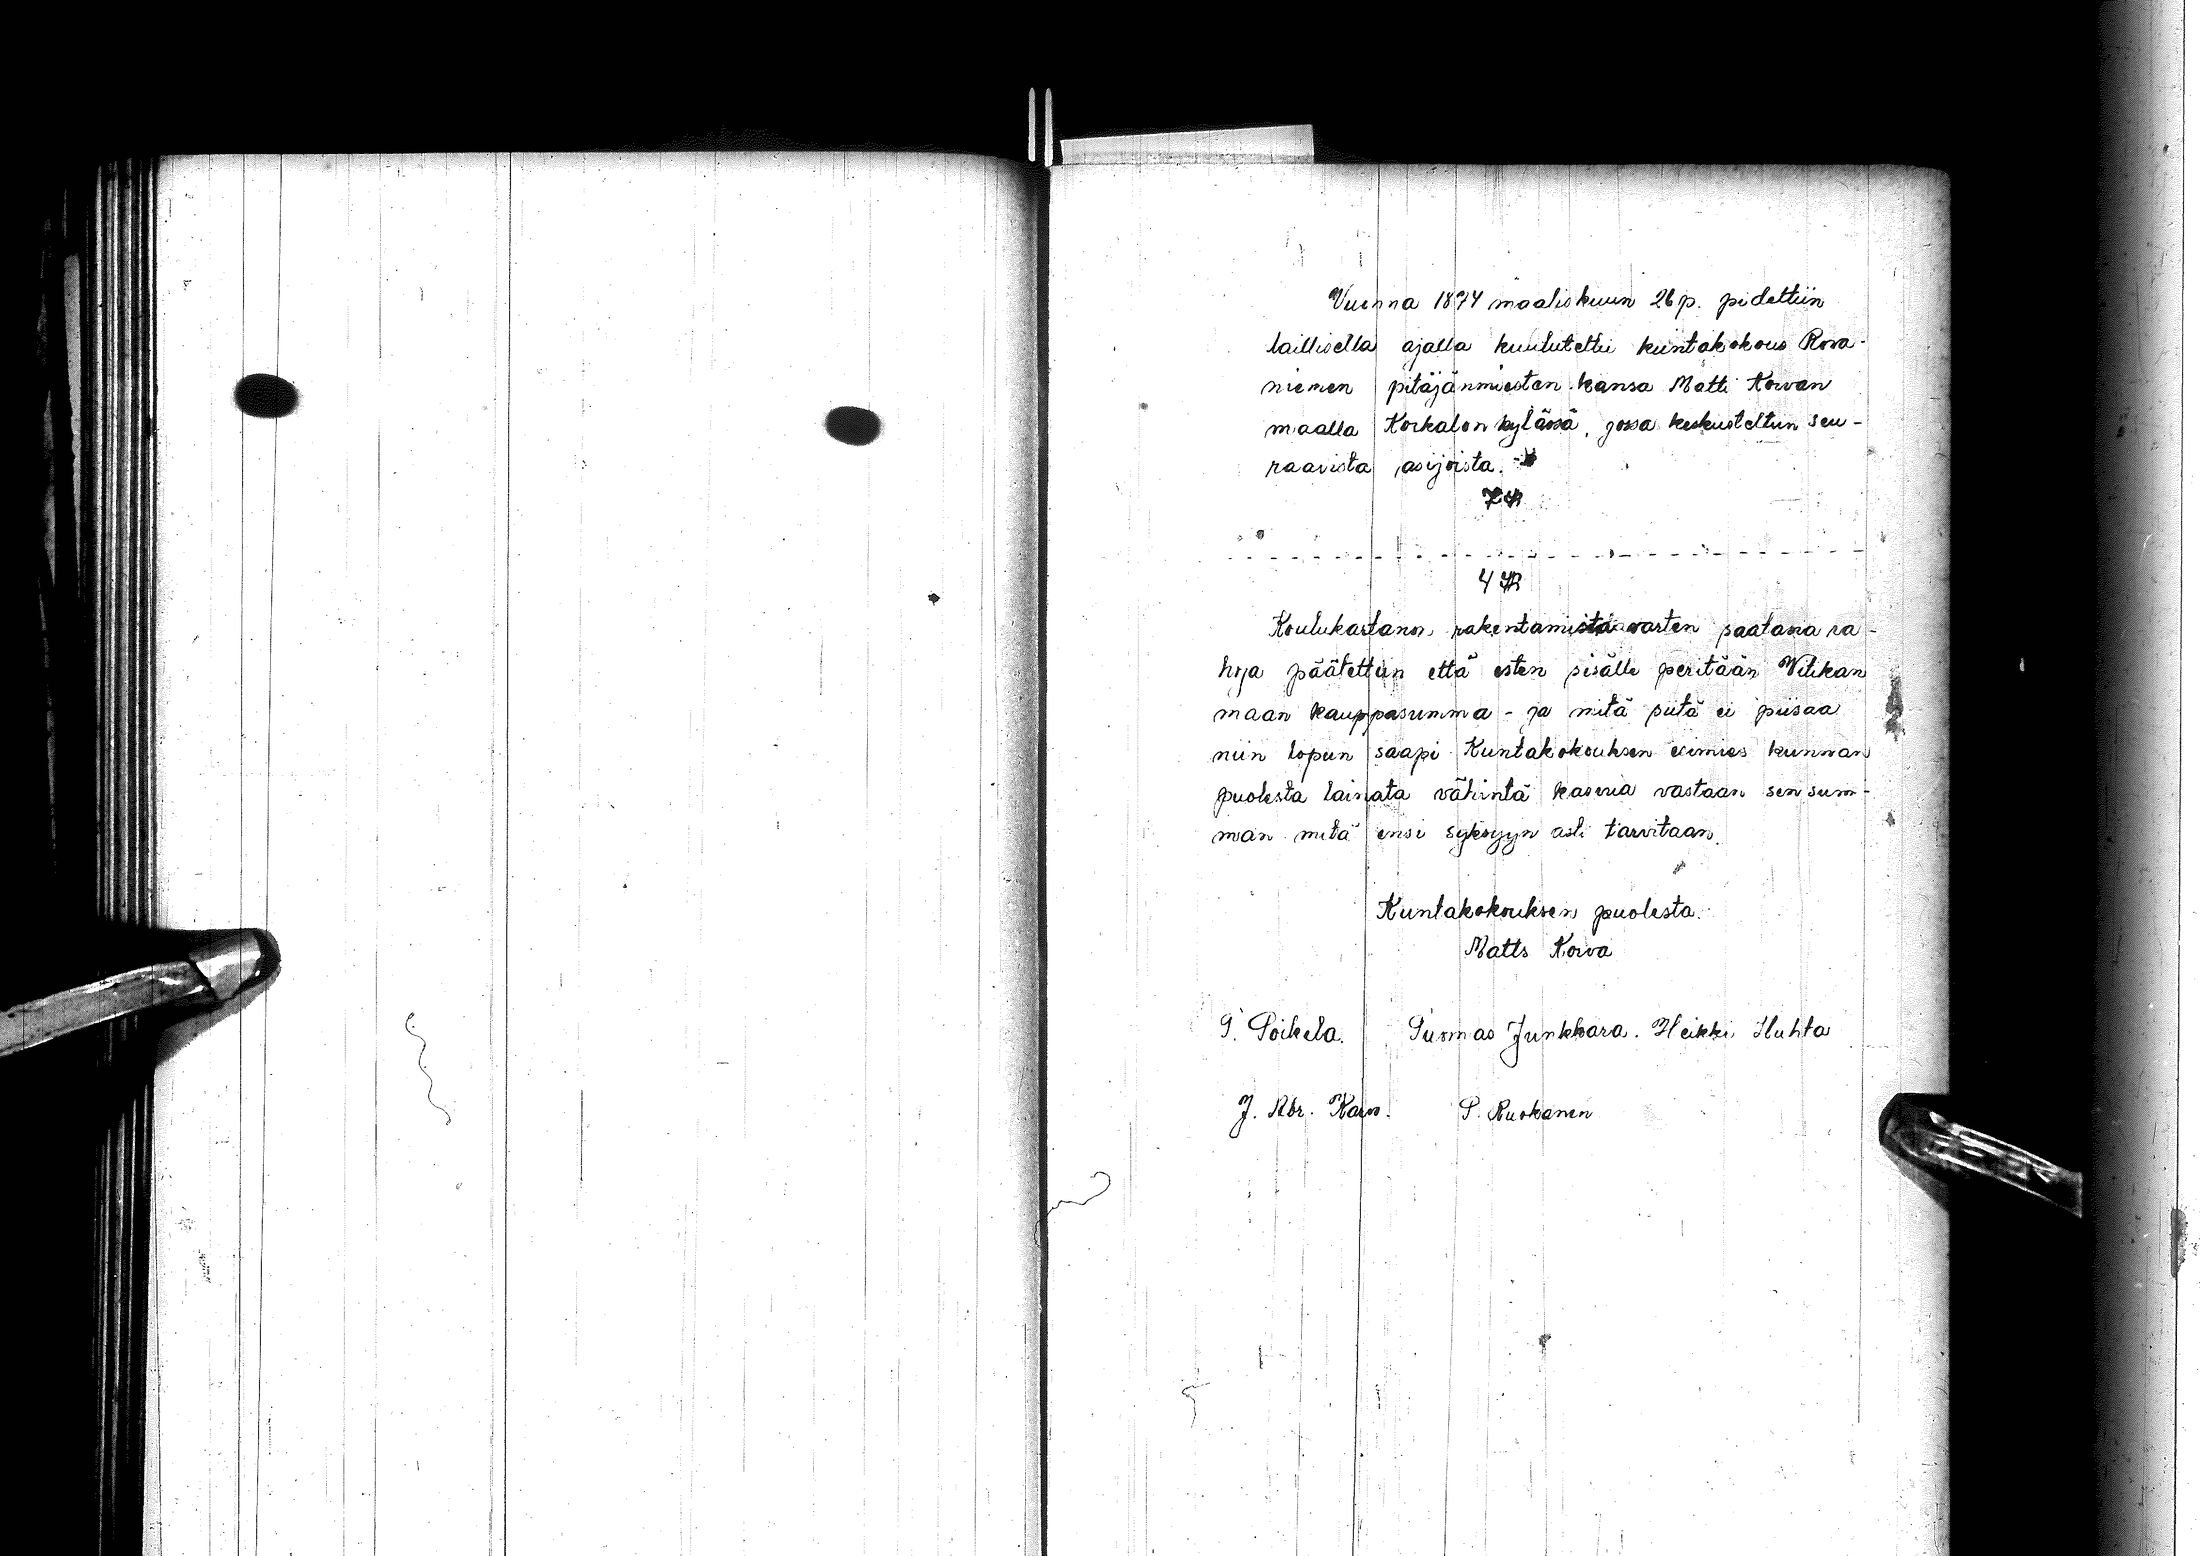 Vuonna 1874 maaliskuun 26 p. pidettiin
laillisella ajalla kuulutettu kuntakokous Rova-
niemen pitäjänmiesten kansa Matti Koivan
maalla Korkalon kylässä, jossa keskusteltiin seu-
raavista asijoista.
- - - - - - - - - - - - - - - - - - - - -
4 §
Koulukartanon rakentamista varten saatavia ra-
hoja päätettiin että esten sisälle peritään Vitikan
maan kauppasumma - ja mitä siitä ei piisaa
niin lopun saapi Kuntakokouksen esimies kunnan
puolesta lainata vähintä kasvua vastaan sen sum-
man mitä ensi syksyyn asti tarvitaan.
Kuntakokouksen puolesta.
Matts Koiva
P. Poikela. Tuomas Junkkara. Heikki Huhta
J. Abr. Karo. P. Ruokanen